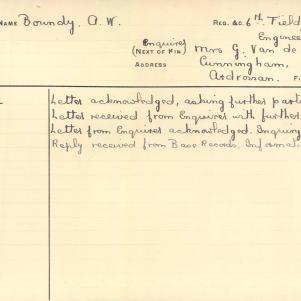 NAME Boundy. A.W. REG. &C. 6th. Field
Engineer
Enquirer
(NEXT OF KIN) Mrs G. Van de
ADDRESS Cunningham,
Ardrossan.
Letter acknowledged, asking further parti
Letter received from Enquirer with further
Letter from Enquirer acknowledged. Inquiry
Reply received from Base Records. Informati